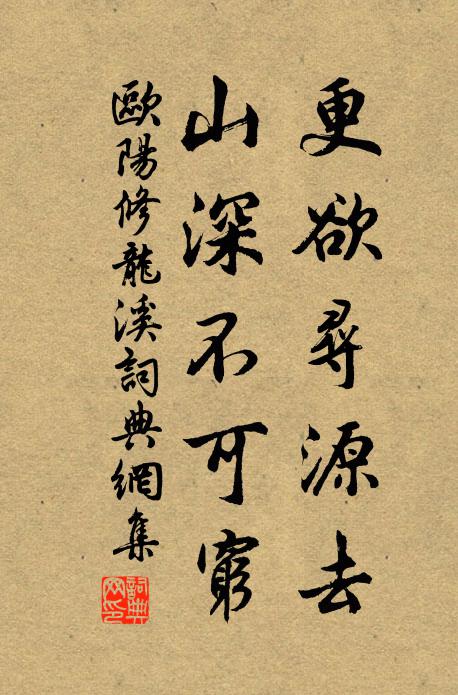 更欲尋源去
山深不可窮
歐陽修龍溪詞典網集
詞典網印